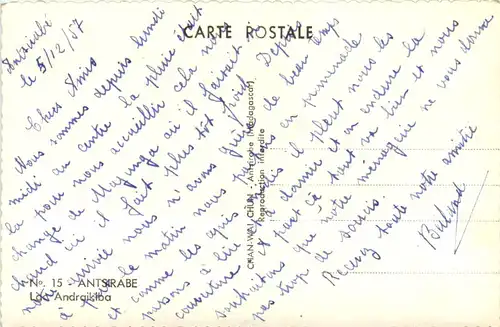 CARTE POSTALE
Antsirabé
le 5/12/57
Chers Amis
Nous sommes depuis lundi
midi au centre la pluie était
là pour nous accueillir cela nous
change de Majunga où il faisait
chaud ici il fait plus tôt froid. Depuis
notre arrivée nous n'avons que peu de beau temps
le matin nous en promenade
et comme les après midis il pleut nous les
passons à lire à dormir et on endure la
couverture. A part ça tout va bien et nous
souhaitons que notre ménagerie ne vous donne
pas trop de soucis.
Recevez toute notre amitié
CHAN-WAI-CHUN - Antsirabe (Madagascar)
Reproduction interdite
No. 15 - ANTSIRABE
Lac Andraikiba